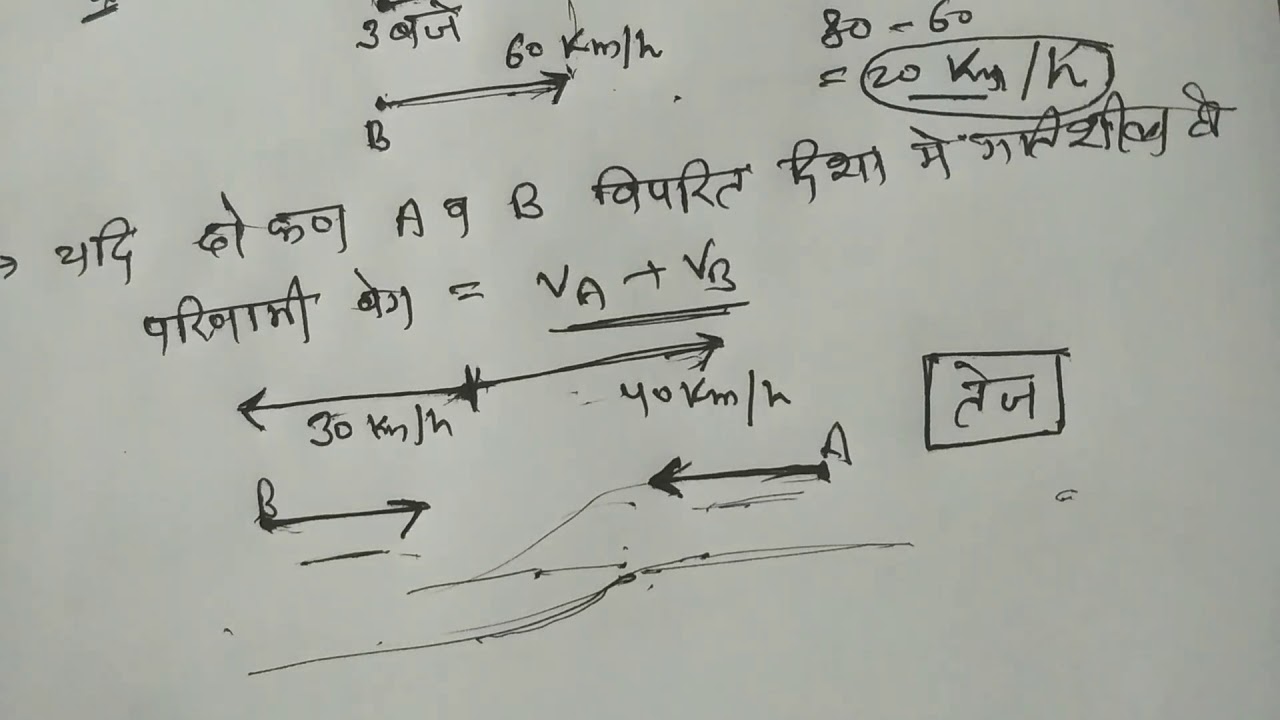 3 बजे
60 Km/h
B
80 - 60
= 20 Km/h
→ यदि दो कण A व B विपरित दिशा में गतिशील हो
परिणामी वेग = VA + VB
30 Km/h
40 Km/h
तेज
B
A